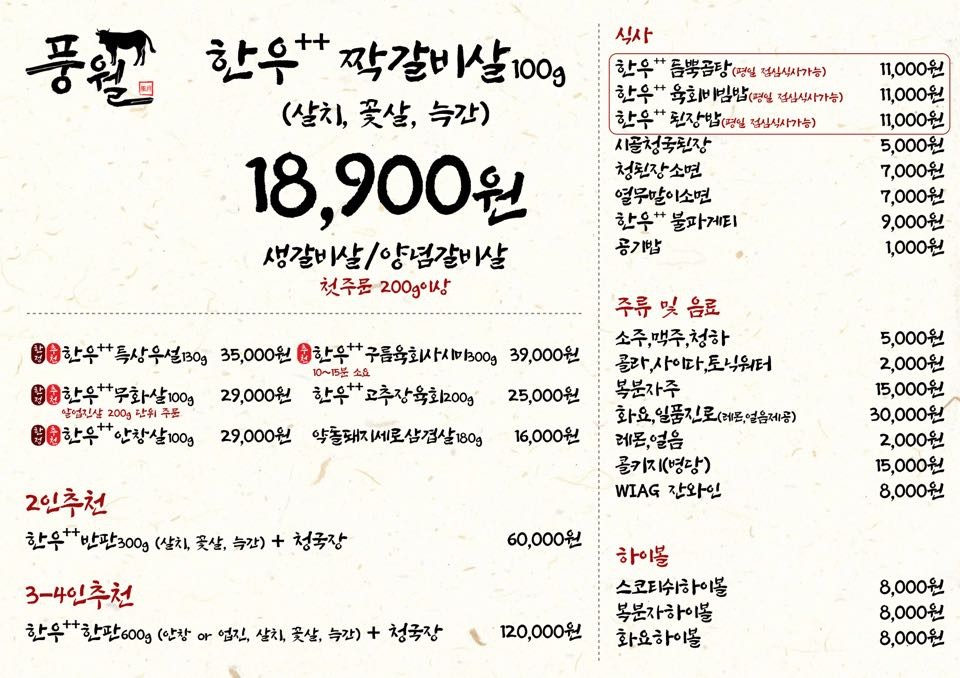 풍월
한우++ 짝갈비살100g
(살치, 꽃살, 늑간)
18,900원
생갈비살/양념갈비살
첫주문 200g이상
한정 추천 한우++특상우설130g 35,000원
한정 추천 한우++무화살100g 29,000원
알업진살 200g 단위 주문
한정 추천 한우++안창살100g 29,000원
추천 한우++구름육회사시미300g 39,000원
10~15분 소요
한우++고추장육회200g 25,000원
약돌돼지세로삼겹살180g 16,000원
2인추천
한우++반판300g (살치, 꽃살, 늑간) + 청국장 60,000원
3-4인추천
한우++한판600g (안창 or 업진, 살치, 꽃살, 늑간) + 청국장 120,000원
식사
한우++ 듬뿍곰탕(평일 점심식사가능) 11,000원
한우++ 육회비빔밥(평일 점심식사가능) 11,000원
한우++ 된장밥(평일 점심식사가능) 11,000원
시골청국된장 5,000원
청된장소면 7,000원
열무말이소면 7,000원
한우++ 불파게티 9,000원
공기밥 1,000원
주류 및 음료
소주,맥주,청하 5,000원
콜라,사이다,토닉워터 2,000원
복분자주 15,000원
화요,일품진로(레몬,얼음제공) 30,000원
레몬,얼음 2,000원
콜키지(병당) 15,000원
WIAG 잔와인 8,000원
하이볼
스코티쉬하이볼 8,000원
복분자하이볼 8,000원
화요하이볼 8,000원